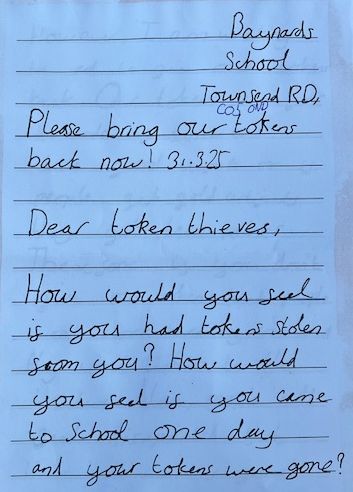 Baynards
School
Townsend RD,
COS OND
Please bring our tokens
back now! 31.3.25
Dear token thieves,
How would you feel
if you had tokens stolen
from you? How would
you feel if you came
to School one day
and your tokens were gone?